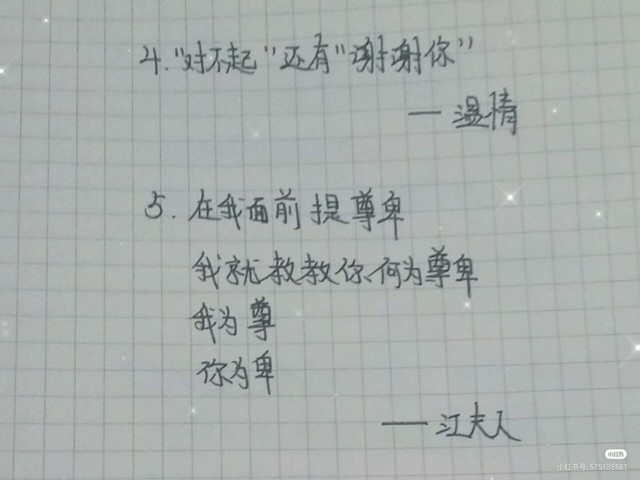 4.“对不起”还有“谢谢你”
—温情
5.在我面前提尊卑
我就教教你何为尊卑
我为尊
你为卑
——江夫人
小红书
小红书号:575135581